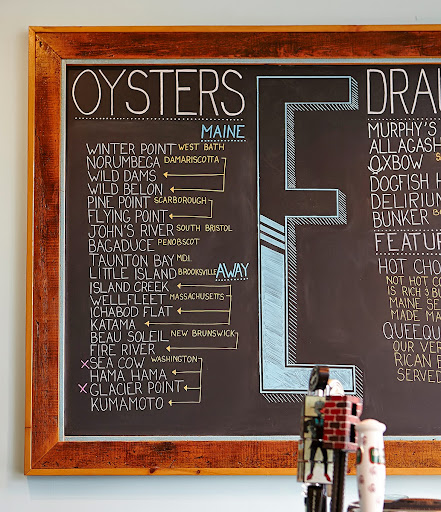 OYSTERS
MAINE
WINTER POINT WEST BATH
NORUMBEGA DAMARISCOTTA
WILD DAMS
WILD BELON
PINE POINT SCARBOROUGH
FLYING POINT
JOHN'S RIVER SOUTH BRISTOL
BAGADUCE PENOBSCOT
TAUNTON BAY M.D.I.
LITTLE ISLAND BROOKSVILLE
AWAY
ISLAND CREEK
WELLFLEET MASSACHUSETTS
ICHABOD FLAT
KATAMA
BEAU SOLEIL NEW BRUNSWICK
FIRE RIVER
X SEA COW WASHINGTON
HAMA HAMA
X GLACIER POINT
KUMAMOTO
E
DRA
MURPHY'S
ALLAGASH
OXBOW
DOGFISH H
DELIRIU
BUNKER
FEATU
HOT CHO
NOT HOT CO
IS RICH & BU
MAINE SE
MADE MA
QUEEQU
OUR VER
RICAN B
SERVED